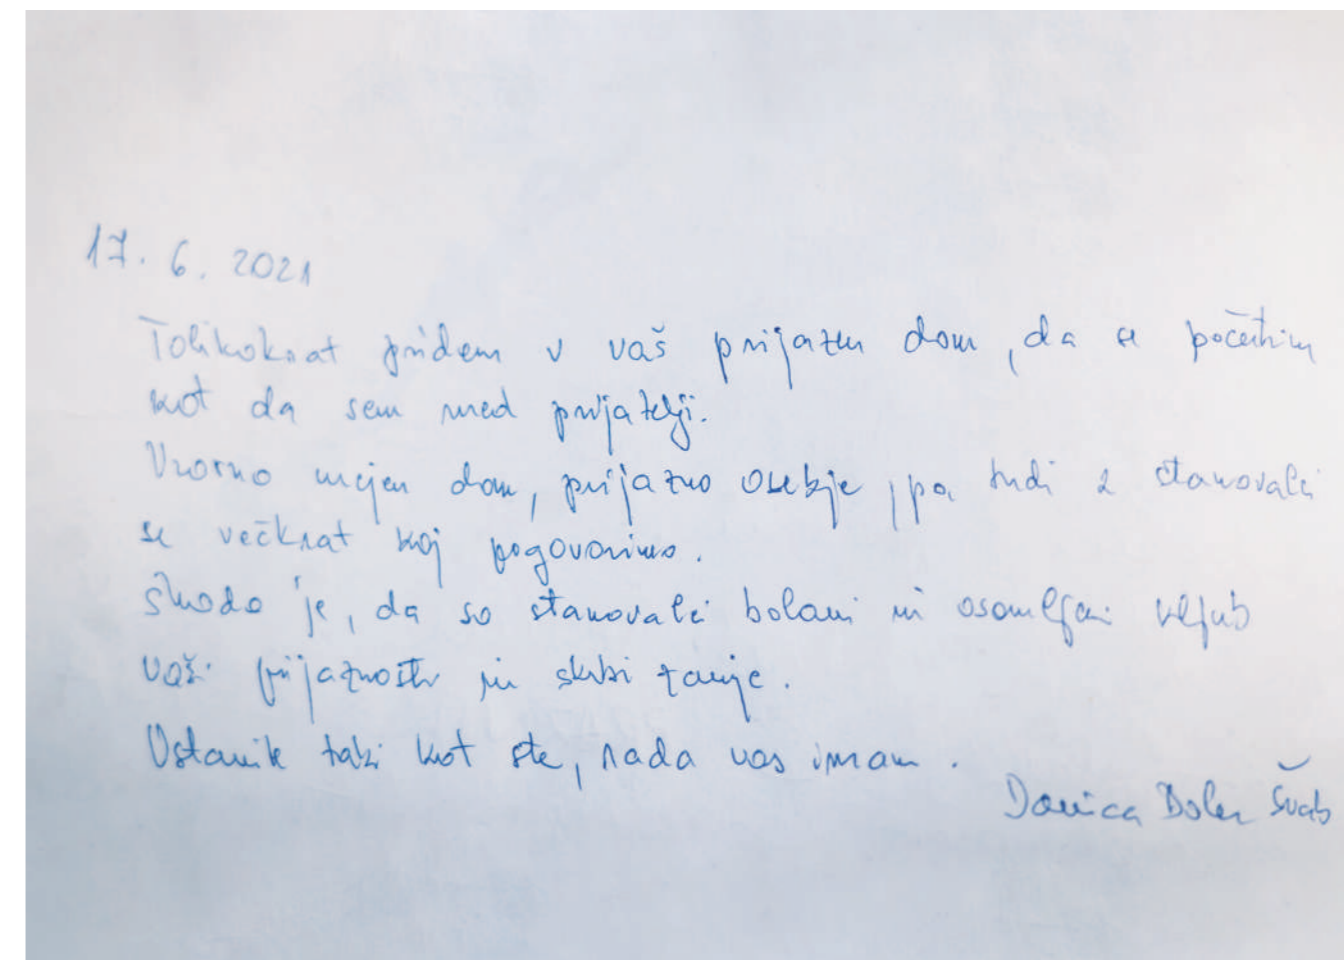 17. 6. 2021
Tolikokrat pridem v vaš prijazen dom, da se počutim
kot da sem med prijatelji.
Vzorno urejen dom, prijazno osebje, pa tudi s stanovalci
se večkrat kaj pogovorimo.
Škoda je, da so stanovalci bolani in osamljeni kljub
vaši prijaznosti in skrbi zanje.
Ostanite taki kot ste, rada vas imam.
Danica Bolen Švab